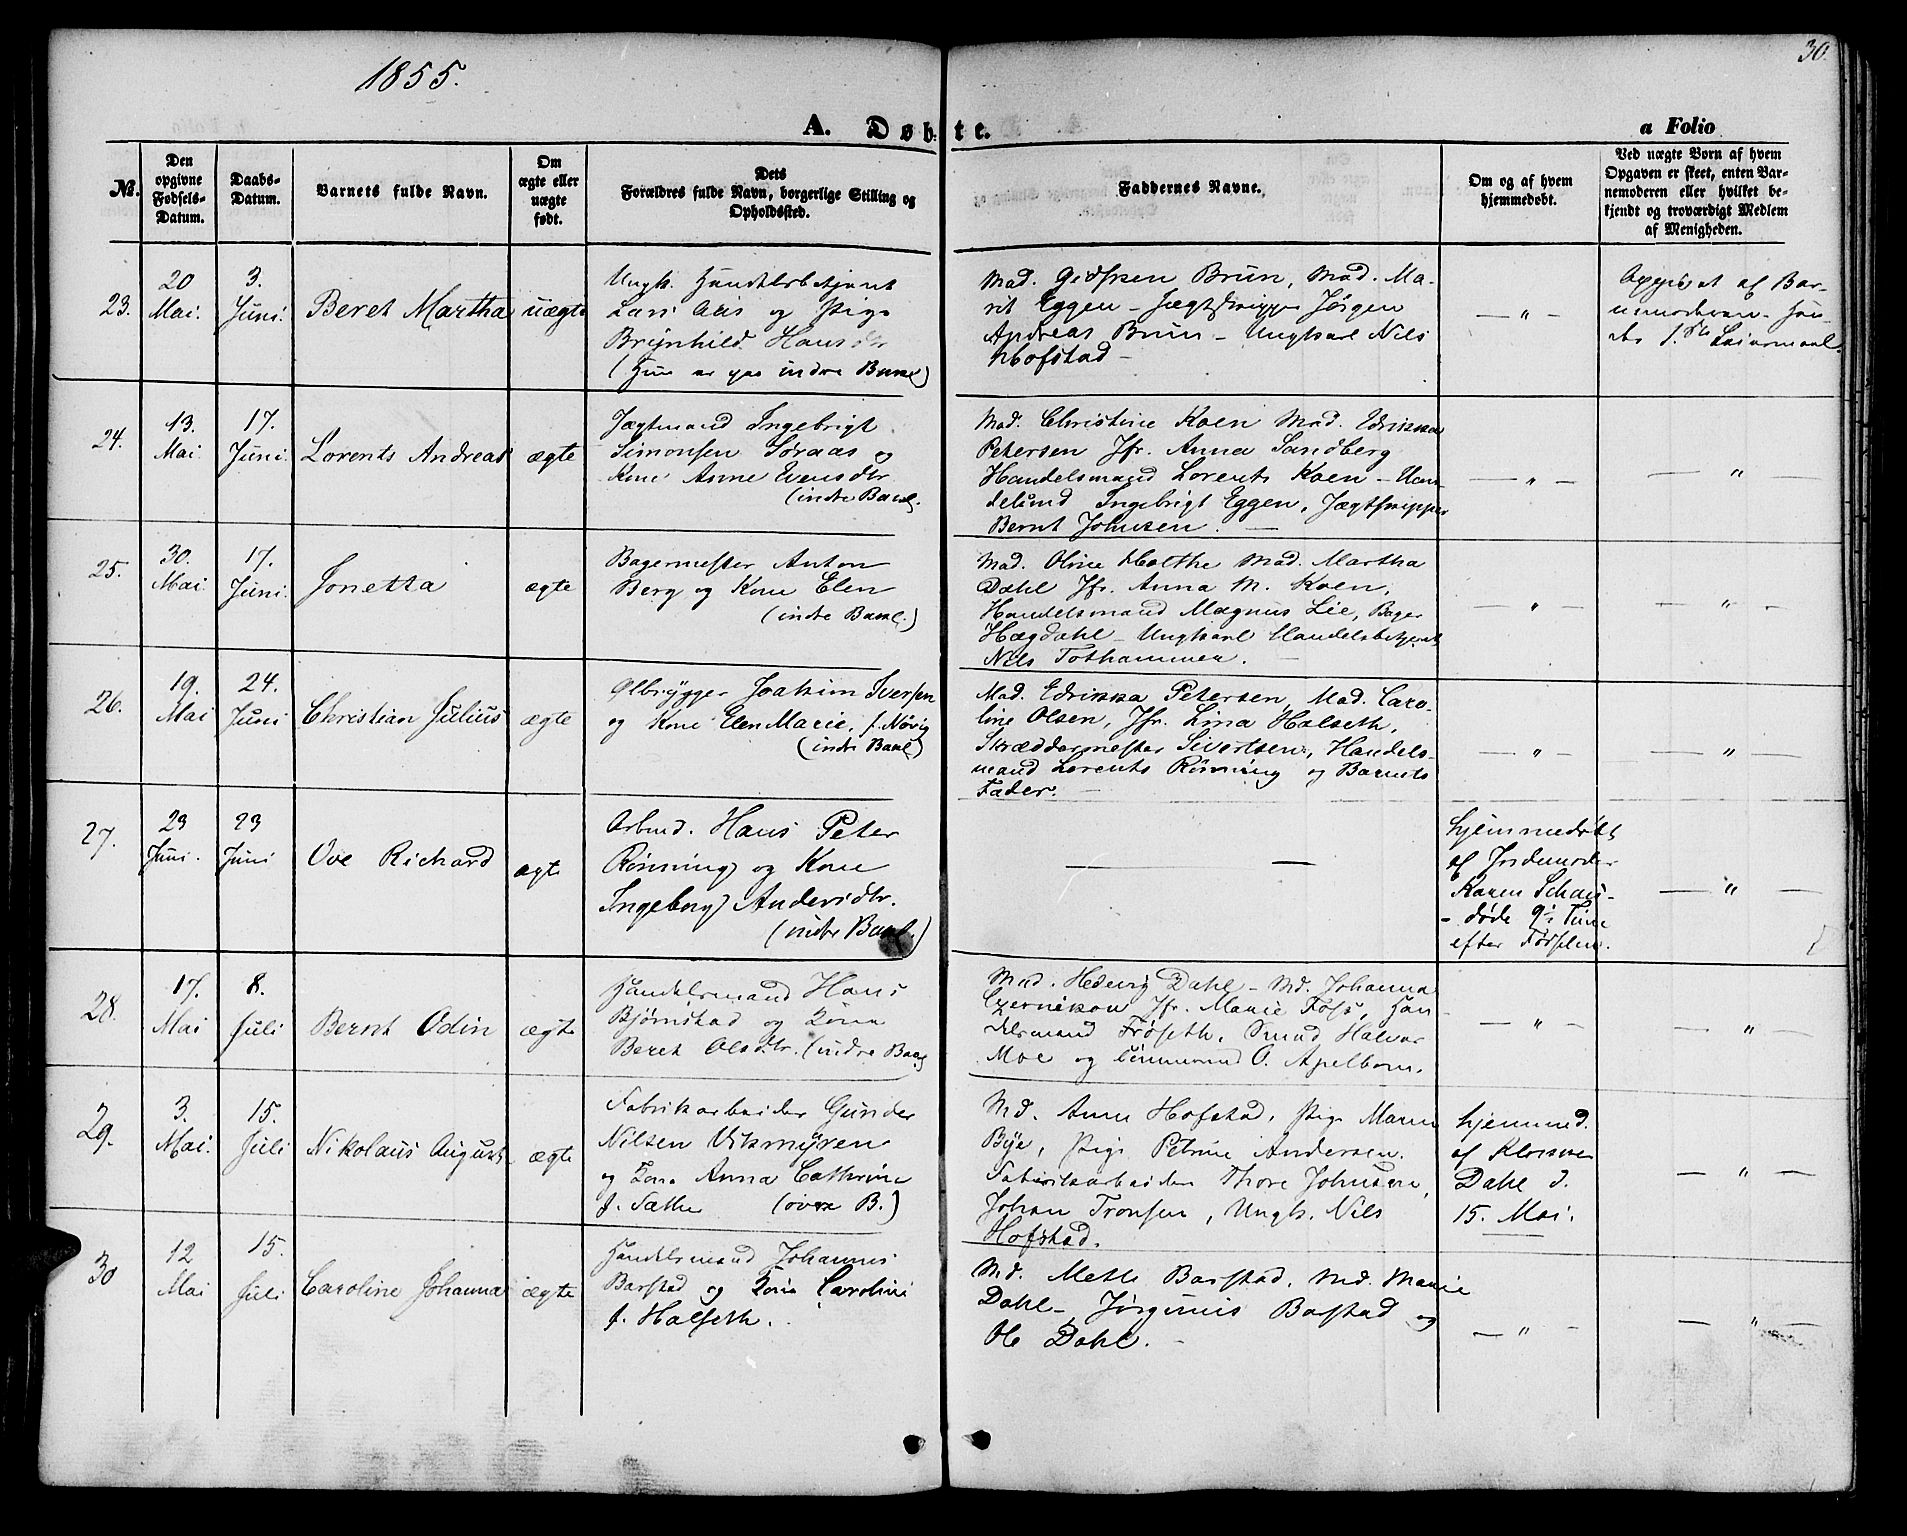 1855.
30.
A. Døbte.
a Folio
No.
Den opgivne Fødsels-Datum.
Daabs-Datum.
Barnets fulde Navn.
Om ægte eller uægte født.
Dets Forældres fulde Navn, borgerlige Stilling og Opholdssted.
Faddernes Navne.
Om og af hvem hjemmedøbt.
Ved uægte Børn af hvem Opgaven er skeet, enten Barnemoderen eller hvilket bekjendt og troværdigt Medlem af Menigheden.
23.
20 Mai.
3. Juni.
Beret Martha
uægte
Ungk. Handelsbetjent
Lars Aas og Pige
Brynhild Hansdtr
(Hun er paa indre Bakl)
Mad. Gidsken Brun, Mad. Ma-
rit Eggen - Jægtskipper Jørgen
Andreas Brun - Ungkarl Nils
Hofstad -
— " —
Opgivet af Bar-
nemoderen -
1ste Leiermaal.
24.
13. Mai.
17. Juni.
Lorents Andreas
ægte
Jægtmand Ingebrigt
Simonsen Søraas og
Kone Anne Evensdtr
(indre Bakl.
Mad. Christine Koen Mad. Edrikka
Petersen Jfr. Anna Sandberg
Handelsmand Lorents Koen - Han-
delsmd Ingebrigt Eggen, Jægtskipper
Bernt Johnsen. —
— " —
— " —
25.
30. Mai.
17. Juni.
Jonetta
ægte
Bagermester Anton
Berg og Kone Elen
(indre Bakl.)
Mad. Oline Holthe Mad. Martha
Dahl Jfr. Anna M. Koen,
Handelsmand Magnus Lie, Bager
Hægdahl - Ungkarl Handelsbetjent
Nils Tothammer. —
— " —
— " —
26.
19. Mai
24. Juni
Christian Julius
ægte
Ølbrygger Joakim Iversen
og Kone Elen Marie, f. Nøvig
(indre Bakl)
Mad. Edrikka Petersen, Mad. Caro-
line Olsen, Jfr. Lina Halseth,
Skræddermester Sivertsen, Handels-
mand Lorents Rønning og Barnets
Fader. —
— " —
— " —
27.
23 Juni.
23 Juni
Ove Richard
ægte
Arbmd. Hans Peter
Rønning og Kone
Ingeborg Andersdtr.
(indre Bakl.)
— —
hjemmedøbt
af Jordemoder
Karen
- døde 9½ Time
efter Fødselen.
— " —
28.
17. Mai
8. Juli
Bernt Odin
ægte
Handelsmand Hans
Bjørnstad og Kone
Beret Olsdtr. (indre Bakl
Mad. Hedevig Dahl - Md. Johanna
Czernikow Jfr. Marie Foss, Han-
delsmand Frøseth, Smed Halvor
Moe og Tømmermd O. Apelborn.
— " —
— " —
29.
3. Mai.
15. Juli
Nikolaus August
ægte
Fabrikarbeider Gunder
Nilsen Viksmyren
og Kone Anna Cathrine
f. Sæther (øvre B.)
Md. Anne Hofstad, Pige Maren
Bye, Pige Petrine Andersen.
Fabrikarbeider Thore Johnsen,
Johan Tronsen, Ungk. Nils
Hofstad.
hjemmd.
af Klokker
Dahl d.
15. Mai.
— " —
30
12 Mai
15. Juli
Caroline Johanna
ægte
Handelsmand Johannes
Barstad og Kone Caroline
f. Halseth.
Md. Mette Barstad, Md. Marie
Dahl - Jørginus Barstad og
Ole Dahl. —
— " —
— " —